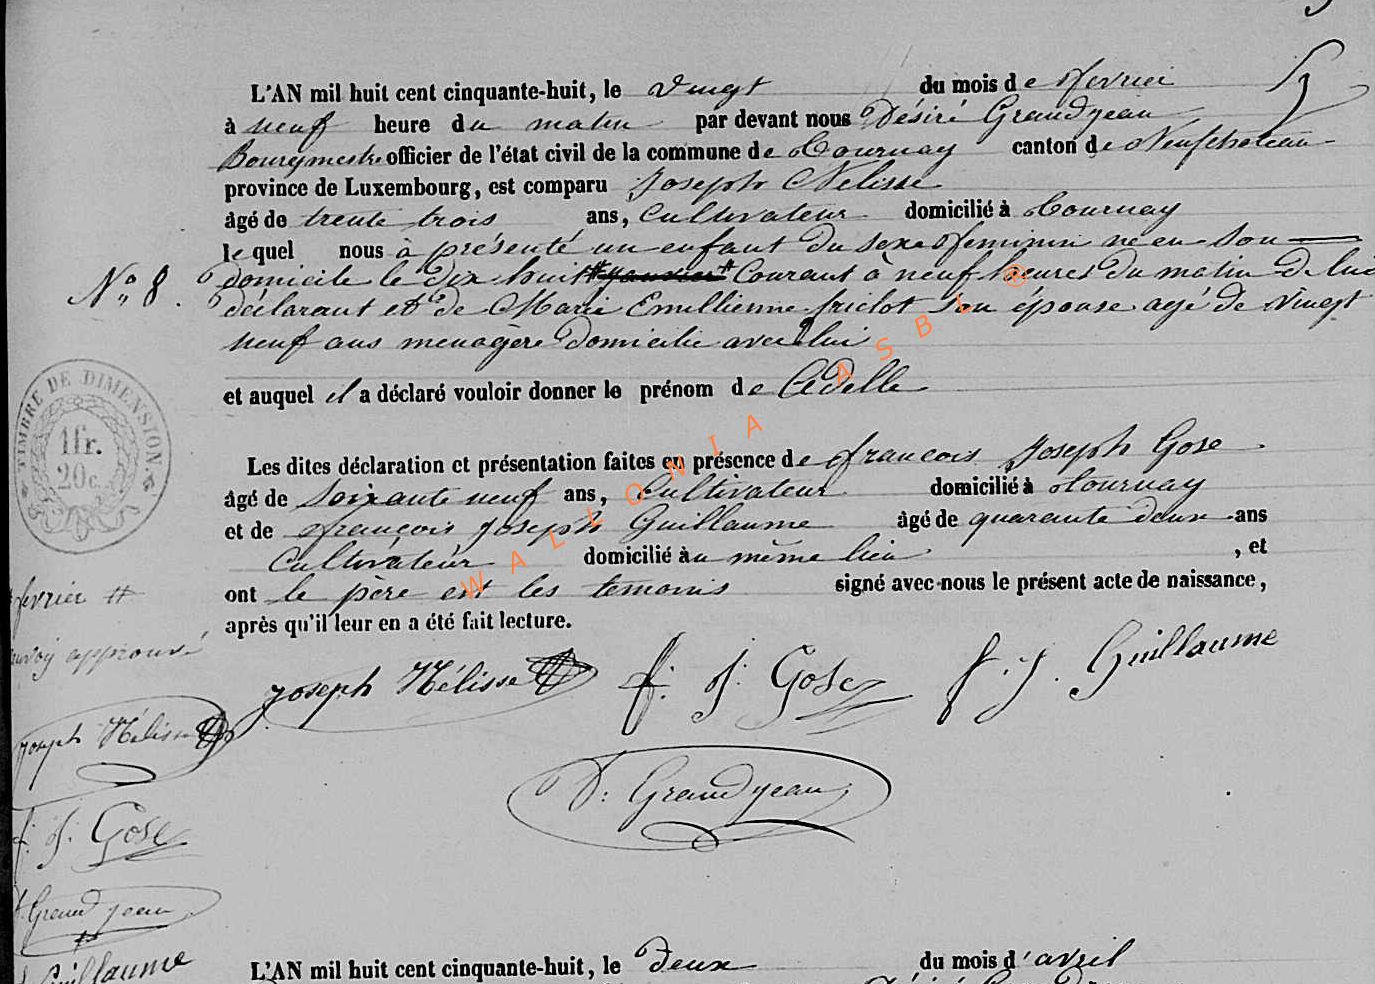 L'AN mil huit cent cinquante-huit, le vingt du mois de fevrier
à neuf heure du matin par devant nous Désiré Grandjean
Bourgmestre officier de l'état civil de la commune de Tournay canton de Neufchateau
province de Luxembourg, est comparu Joseph Nélisse
âgé de trente trois ans, Cultivateur domicilié à Tournay
le quel nous à présenté un enfant du sexe feminin ne en son
N° 8. domicile le dix huit # janvier # Courant à neuf heures du matin de lui
déclarant et de Marie Emillienne friclot son épouse agé de vingt
neuf ans menagère domicilie avec lui
et auquel il a déclaré vouloir donner le prénom de
Les dites déclaration et présentation faites en présence de francois Joseph Gose
âgé de soixante neuf ans, Cultivateur domicilié à Tournay
et de françois joseph Guillaume âgé de quarante deux ans
Cultivateur domicilié au même lieu , et
ont le père est les temoins signé avec nous le présent acte de naissance,
après qu'il leur en a été fait lecture.
TIMBRE DE DIMENSION.
1fr.
20c.
fevrier #
approuvé
joseph Nélisse f. J. Gose f. J. Guillaume
joseph Nélisse
D. Grandjean
f. J. Gose
Grandjean
Guillaume
L'AN mil huit cent cinquante-huit, le deux du mois d'avril
WALLONIA ASBL ®